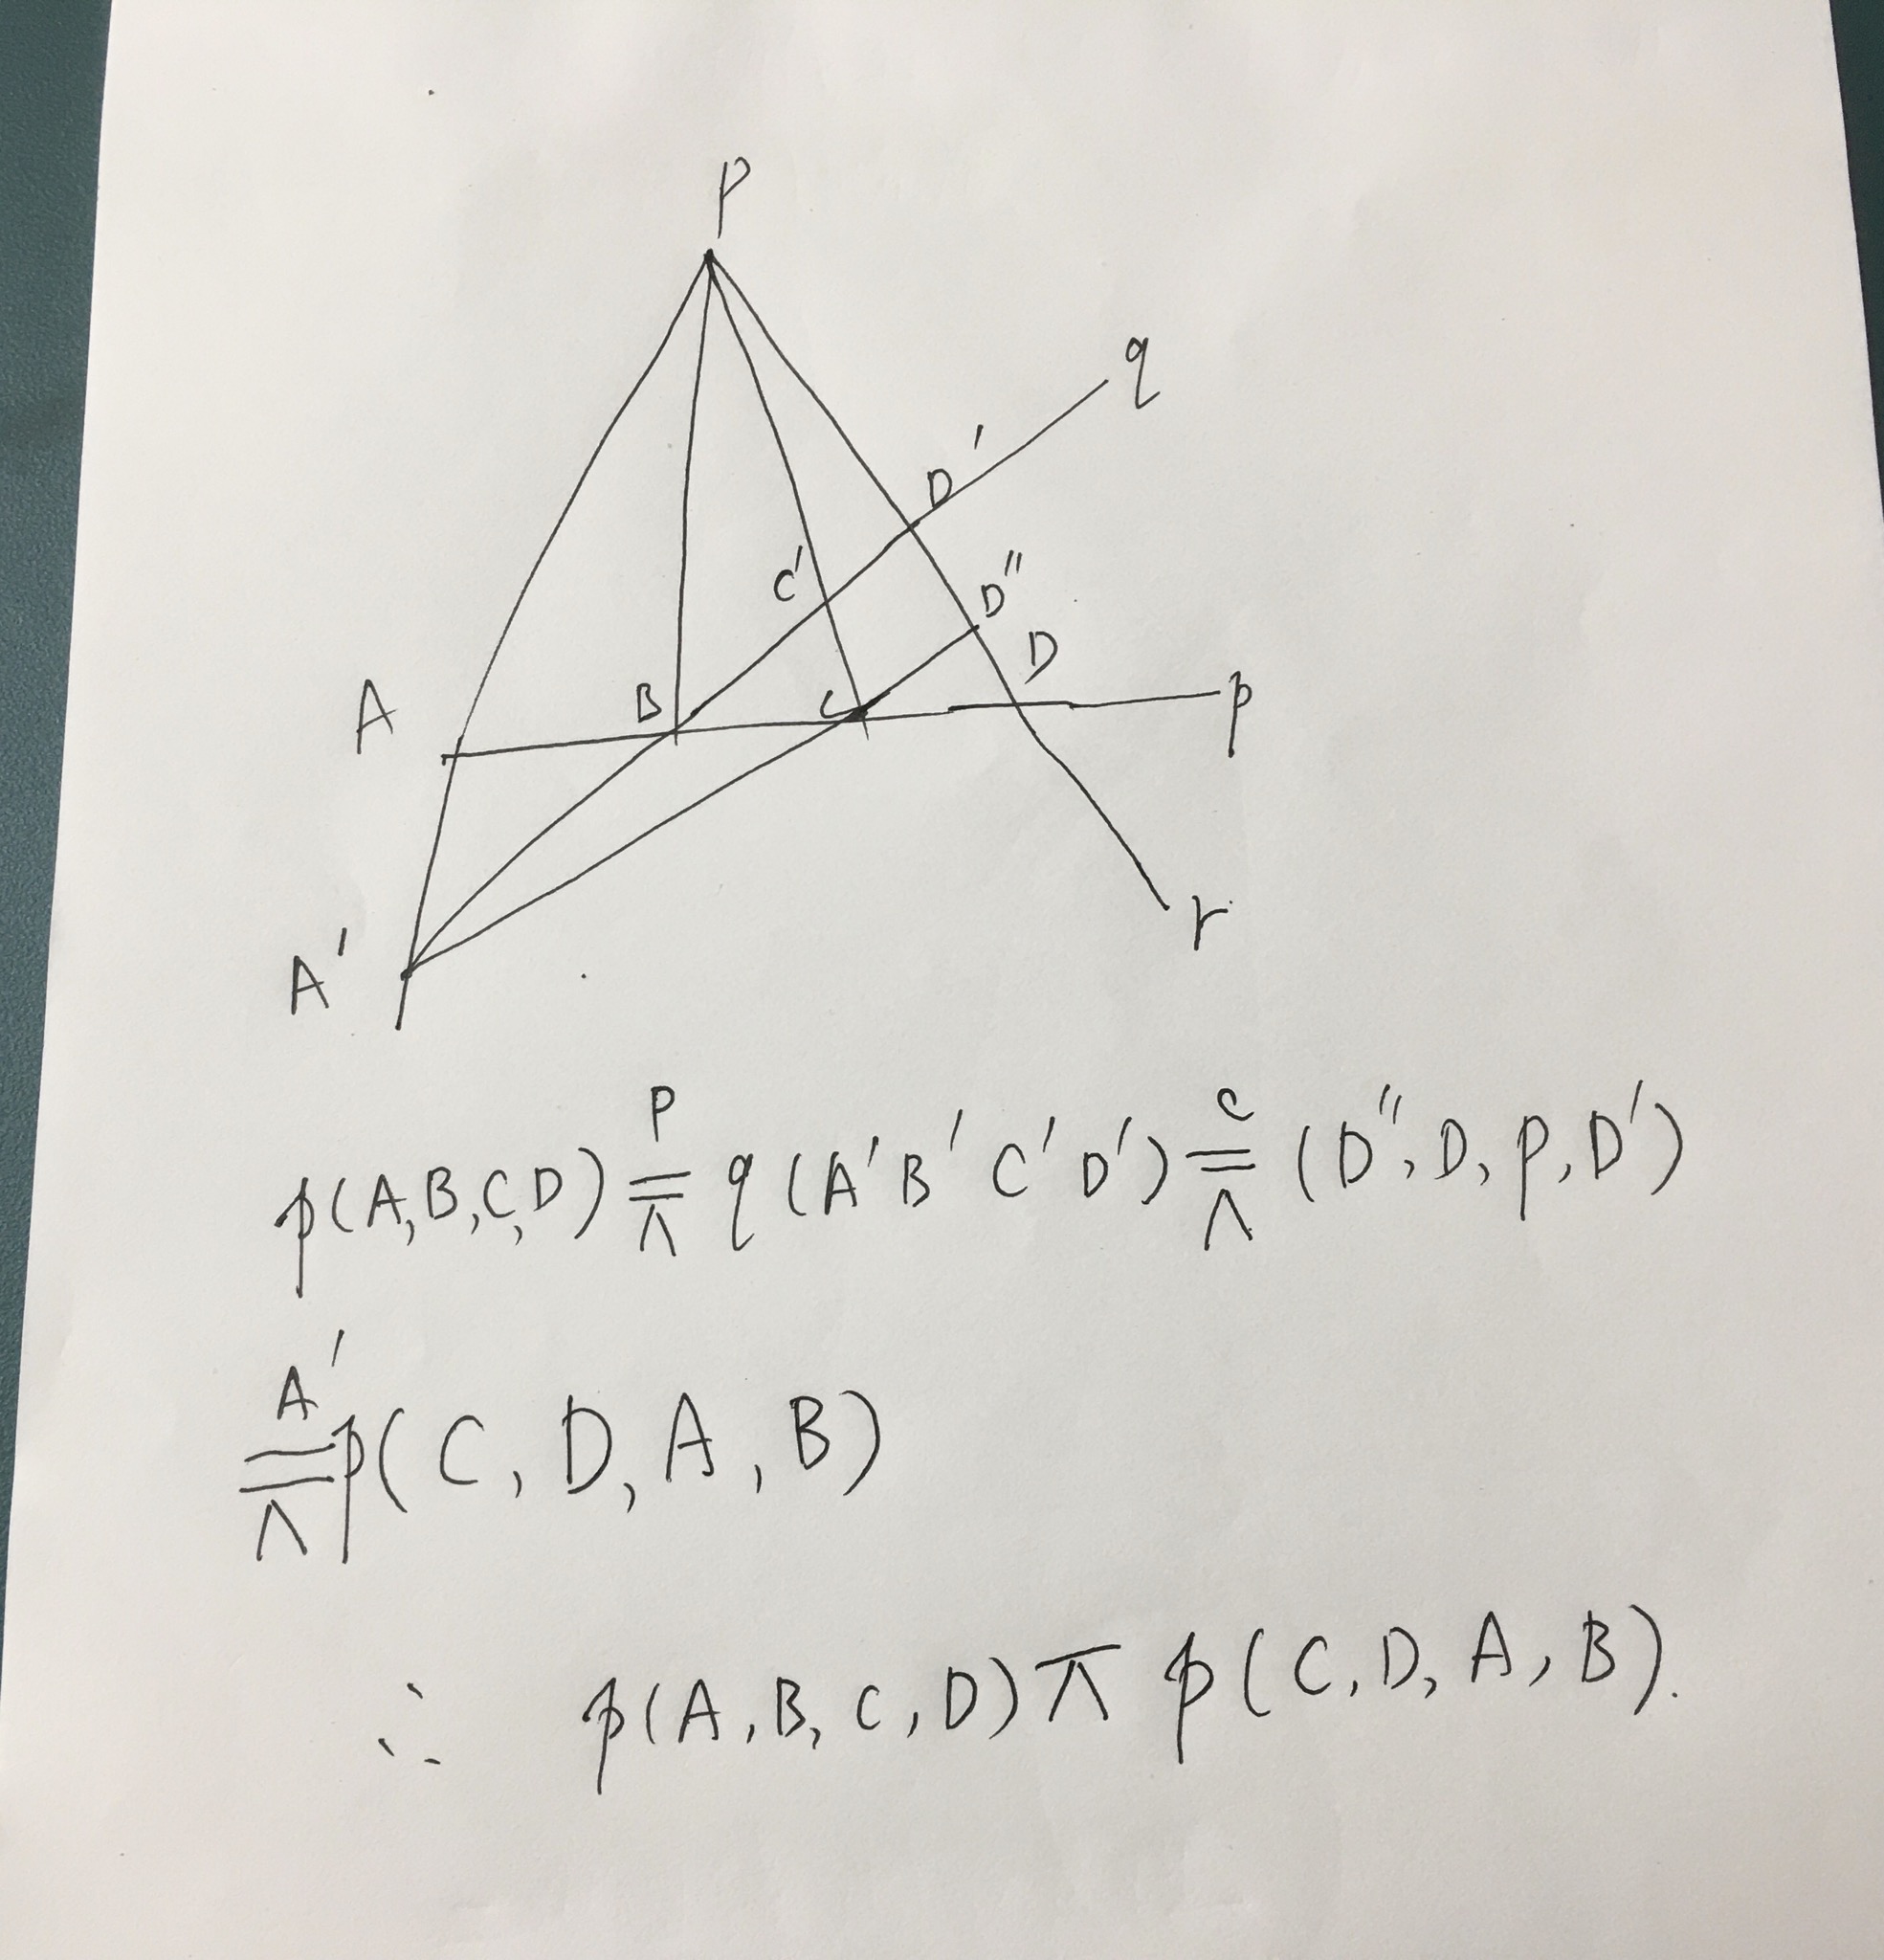 P
q
D'
C'
D''
D
A
B
C
p
r
A'
p(A,B,C,D) P ⌅ q (A'B'C'D') C ⌅ (D'',D,P,D')
A' ⌅ p(C,D,A,B)
∴ p(A,B,C,D) ⊼ p(C,D,A,B).